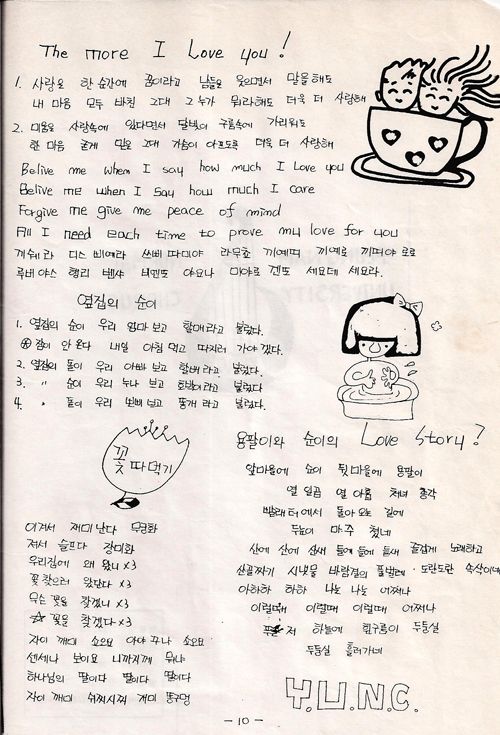 The more I Love you!
1. 사랑은 한 순간에 꿈이라고 남들은 웃으면서 말을해도
내 마음 모두 바친 그대 그 누가 뭐라해도 더욱 더 사랑해
2. 미움은 사랑속에 있다면서 달빛이 구름속에 가리워도
한 마음 굳게 믿은 그대 가슴이 아프도록 더욱 더 사랑해
Belive me when I say how much I Love you
Belive me when I Say how much I care
Forgive me give me peace of mind
All I need each time to prove my love for you
디스 삐에라 쓰삐 따미야 라무쵸
루바야스 행리 벤샤 비엔도 야요나 미야로 겐도 세요데 세요라.
옆집의 순이
1. 옆집의 순이 우리 엄마 보고 할매라고 불렀다.
잠이 안 온다 내일 아침 먹고 따지러 가야겠다.
2. 옆집의 돌이 우리 아빠 보고 할배라고 불렀다.
3. 〃 순이 우리 누나 보고 호박이라고 불렀다
4. 〃 돌이 우리 보고 똥개라고 불렀다.
꽃 따먹기
이겨서 재미난다 무궁화
져서 슬프다 장미화
우리집에 왜 왔니 x3
꽃 찾으러 왔단다 x3
무슨 꽃을 찾겠니 x3
☆ 꽃을 찾겠다 x3
자이 께미 쇼요요 아야 꾸나 쇼요요
센세나 보이요 니까지께 뭐냐
하나님의 딸이다 딸이다 딸이다
자이 께미 쉬찌시찌 께미
용팔이와 순이의 Love Story?
앞마을에 순이 뒷마을에 용팔이
열 일곱 열 아홉 처녀 총각
빨래터에서 돌아오는 길에
두눈이 마주 쳤네
산에 산에 산새 들에 들에 들새 즐겁게 노래하고
산골짜기 시냇물 바람결의 풀벌레 도란도란 속삭이네
아하하 하하 나는 나는 어쩌나
이럴때에 이럴때 이럴때 어쩌나
저 하늘에 흰구름이 두둥실
두둥실 흘러가네
Y.U.N.C.
- 10 -